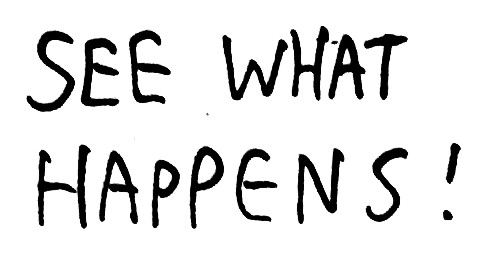 SEE WHAT
HAPPENS!